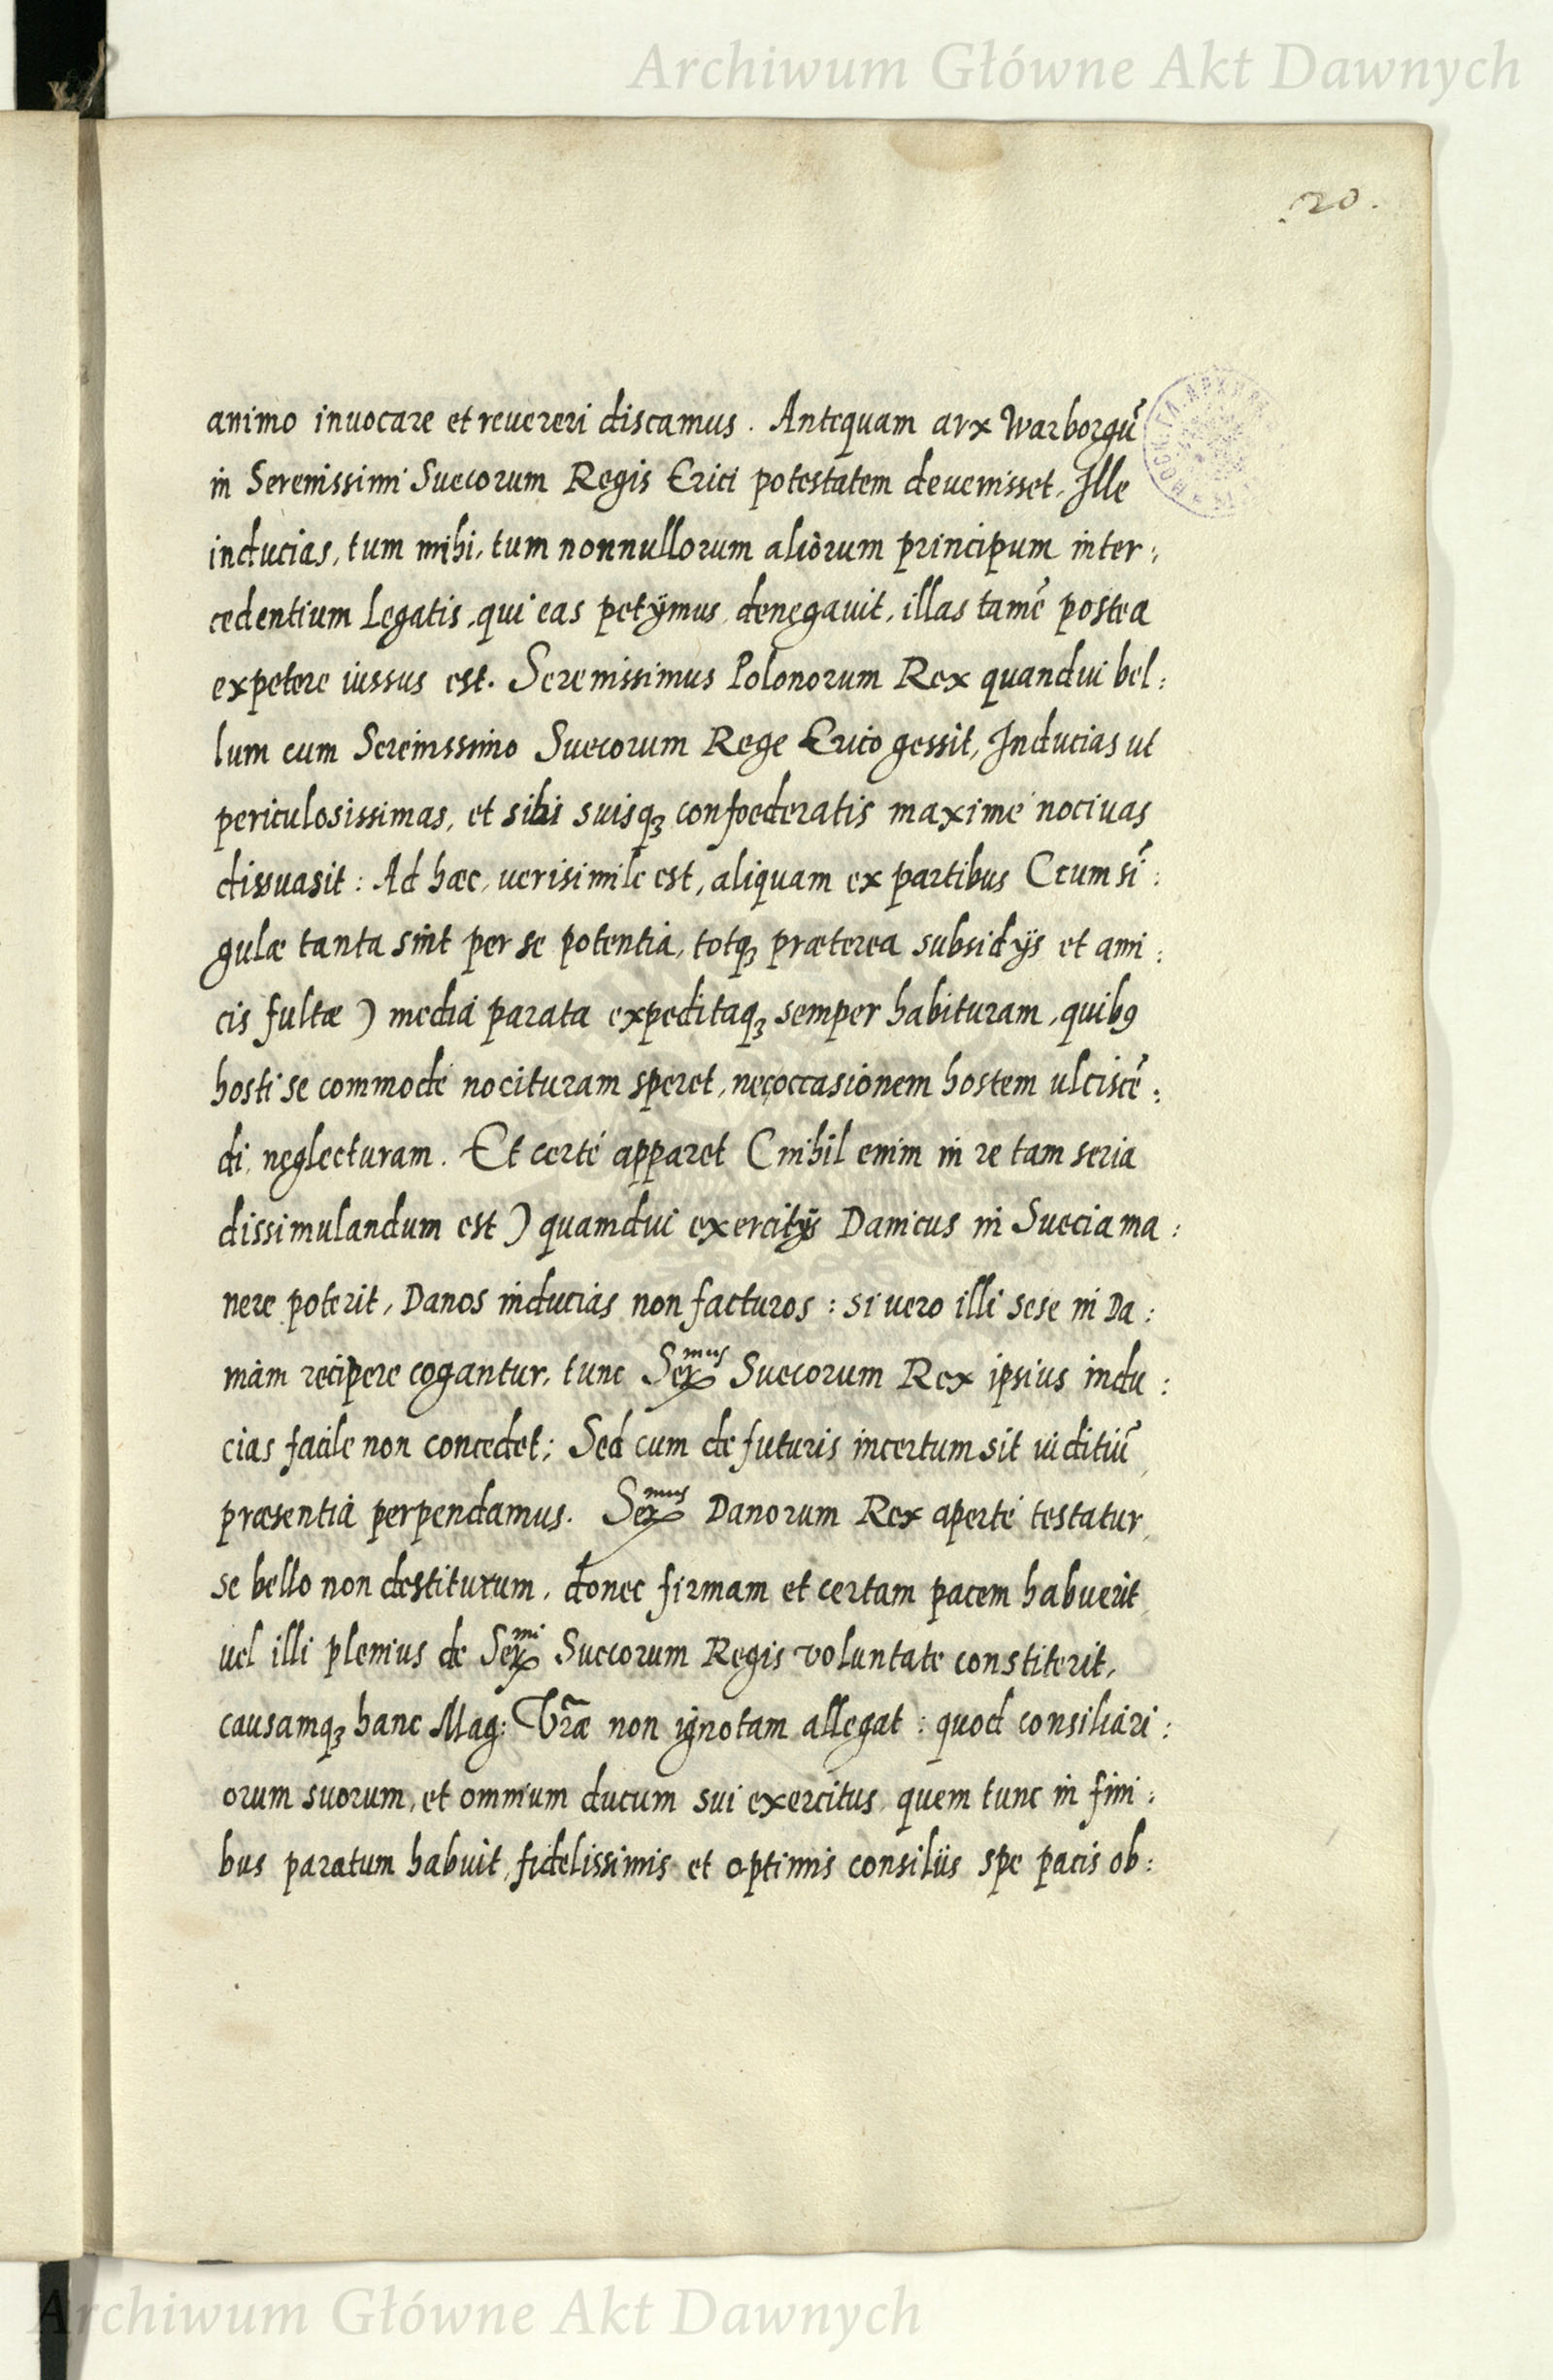 Archiwum Główne Akt Dawnych
.20.
animo inuocare et reuereri discamus. Antequam arx Warborgũ
in Serenissimi Suecorum Regis Erici potestatem deuenisset, Ille
inducias, tum mihi, tum nonnullorum aliorum principum inter:
cedentium Legatis, qui eas petÿmus, denegauit, illas tamẽ postea
expetere iussus est. Serenissimus Polonorum Rex quandiu bel:
lum cum Serenissimo Suecorum Rege Erico gessit, Inducias ut
periculosissimas, et sibi suisqꝫ confoederatis maximè nociuas
dissuasit: Ad hæc, uerisimile est, aliquam ex partibus (cum sĩ:
gulæ tanta sint per se potentia, totqꝫ præterea subsidÿs et ami:
cis fultæ) media parata expeditaqꝫ semper habituram, quibꝰ
hosti se commodè nocituram speret, nec occasionem hostem ulciscẽ:
di, neglecturam. Et certè apparet (nihil enim in re tam seria
dissimulandum est) quamdiu exercitÿs Danicus in Suecia ma:
nere poterit, Danos inducias non facturos: si uero illi sese in Da:
niam recipere cogantur, tunc Ser^mus Suecorum Rex ipsius indu:
cias facile non concedet; Sed cum de futuris incertum sit iuditiũ,
præsentia perpendamus. Ser^mus Danorum Rex apertè testatur,
se bello non destiturum, donec firmam et certam pacem habuerit,
uel illi plenius de Ser^mi Suecorum Regis voluntate constiterit,
causamqꝫ hanc Mag: Vræ̃ non ignotam allegat: quod consiliari:
orum suorum, et omnium ducum sui exercitus, quem tunc in fini:
bus paratum habuit, fidelissimis et optimis consiliis spe pacis ob:
Archiwum Główne Akt Dawnych